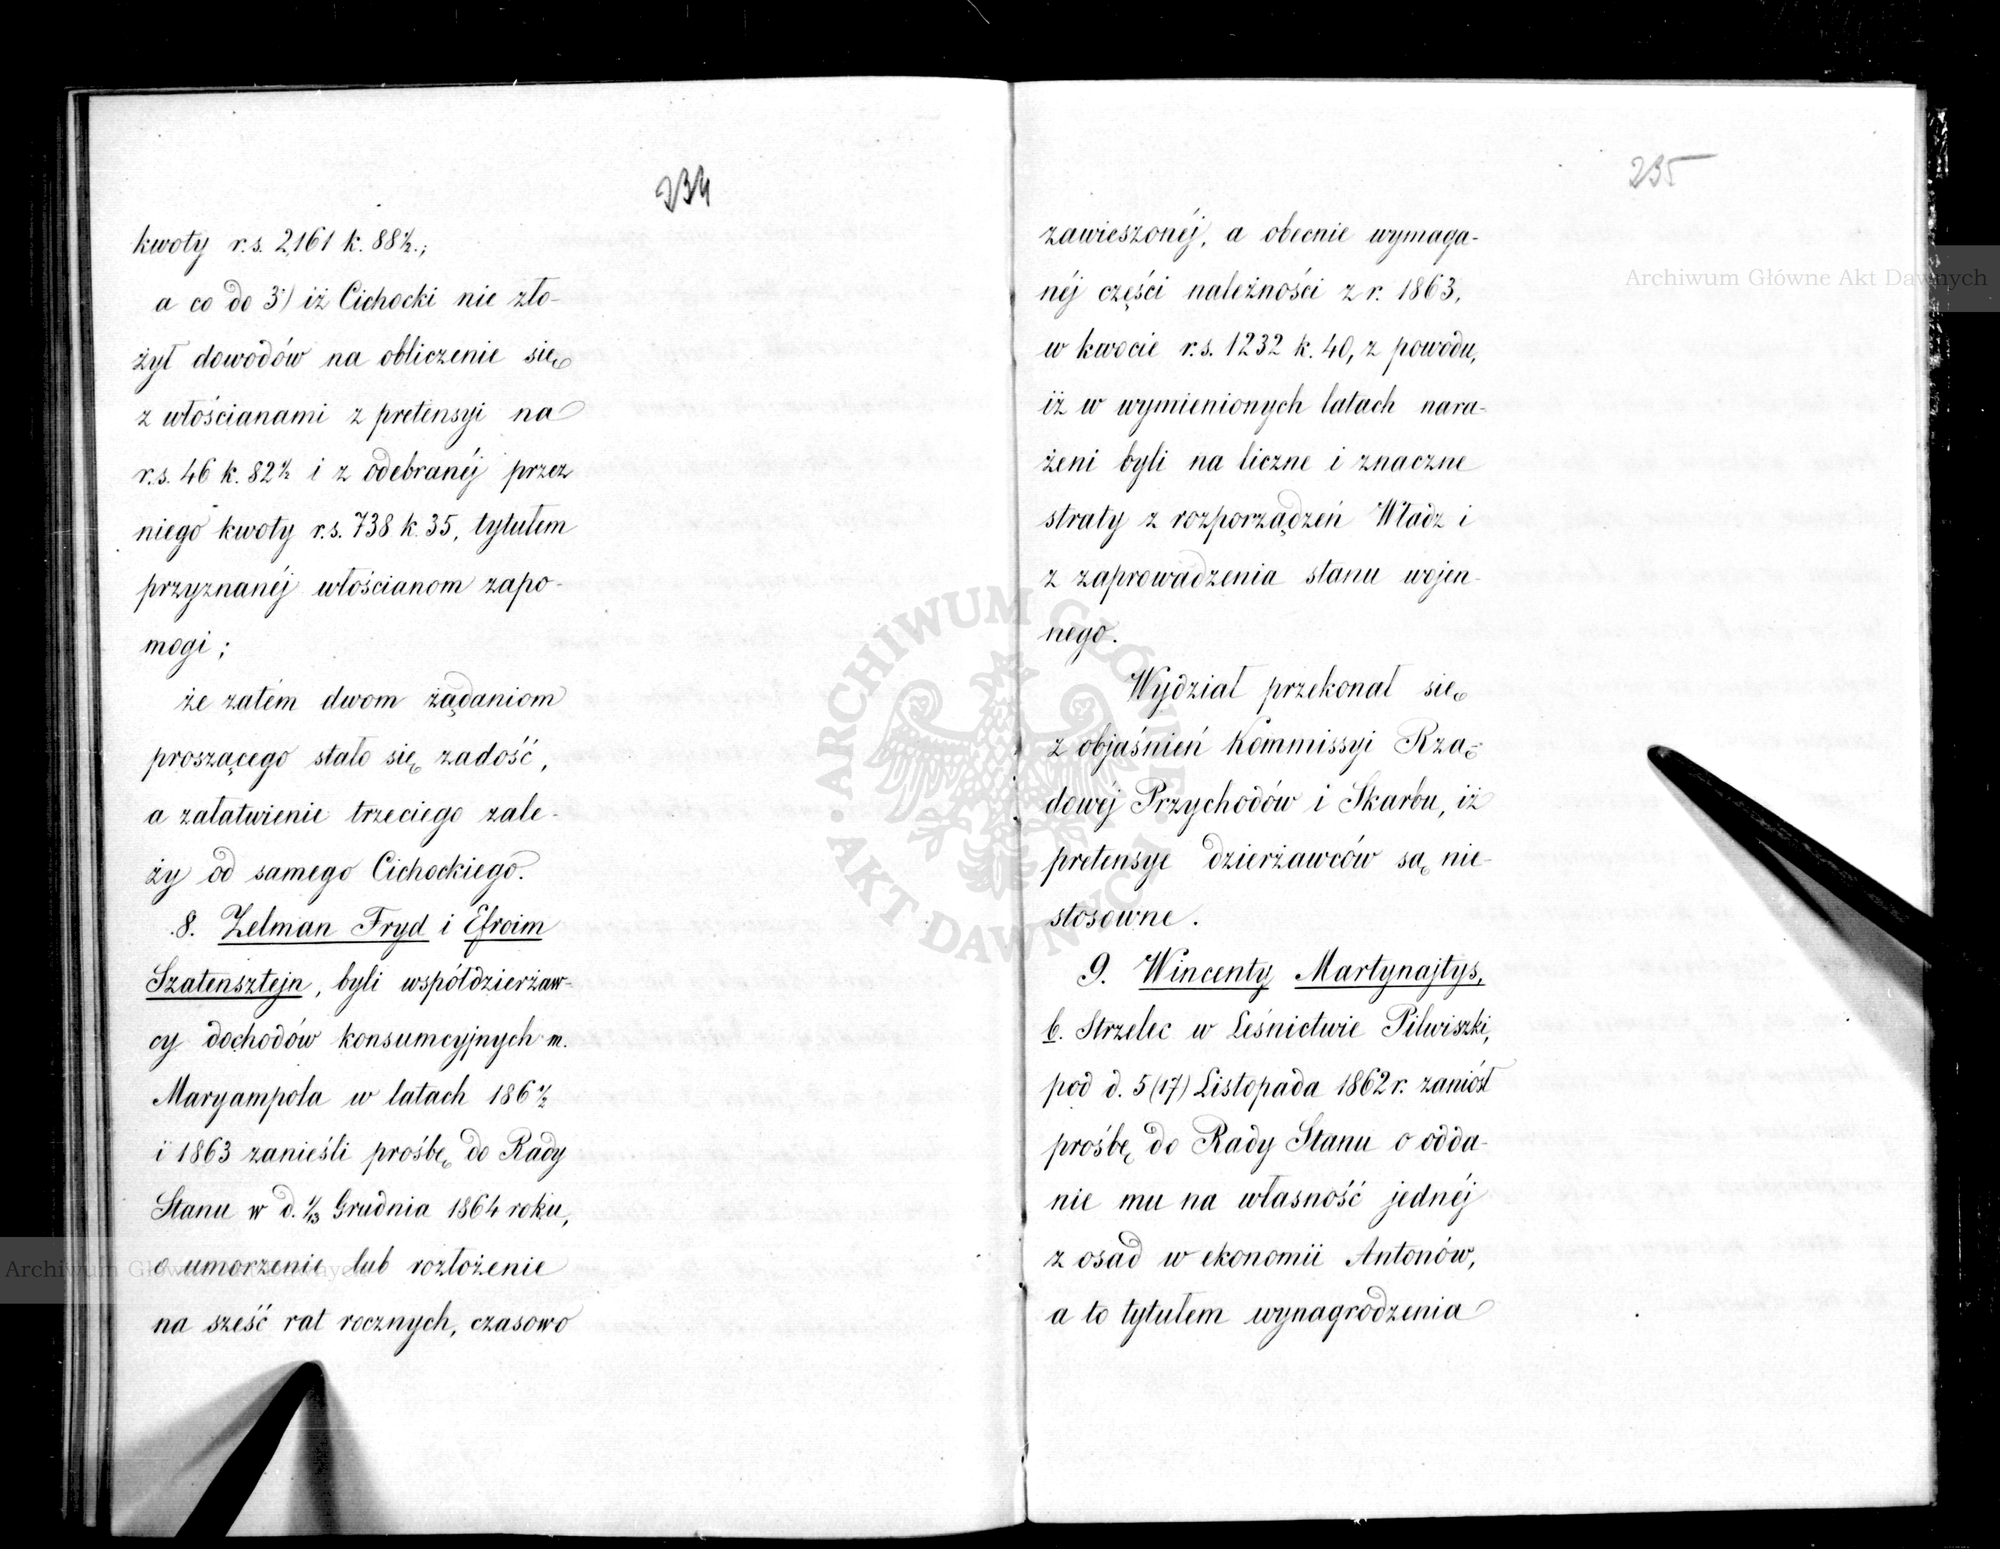 234
kwoty r.s. 2161 k. 88½.;
a co do 3) iż Cichocki nie zło-
żył dowodów na obliczenie się
z włościanami z pretensyi na
r.s. 46 k. 82½ i z odebranéj przez
niego kwoty r.s. 738 k. 35, tytułem
przyznanéj włościanom zapo-
mogi;
że zatém dwom żądaniom
proszącego stało się zadość,
a załatwienie trzeciego zale-
ży od samego Cichockiego.
8. Zelman Fryd i Efroim
Szatensztejn, byli współdzierżaw-
cy dochodów konsumcyjnych m.
Maryampola w latach 186½
i 1863 zanieśli prośbę do Rady
Stanu w d. 1/13 Grudnia 1864 roku,
o umorzenie lub rozłożenie
na sześć rat rocznych, czasowo
235
zawieszonéj, a obecnie wymaga-
néj części należności z r. 1863,
w kwocie r.s. 1232 k. 40, z powodu,
iż w wymienionych latach nara-
żeni byli na liczne i znaczne
straty z rozporządzeń Władz i
z zaprowadzenia stanu wojen-
nego.
Wydział przekonał się
z objaśnień Kommissyi Rzą-
dowéj Przychodów i Skarbu, iż
pretensye dzierżawców są nie-
stosowne.
9. Wincenty Martynajtys,
b. Strzelec w Leśnictwie Pilwiszki,
pod d. 5 (17) Listopada 1862 r. zaniósł
prośbę do Rady Stanu o odda-
nie mu na własność jednéj
z osad w ekonomii Antonów,
a to tytułem wynagrodzenia
Archiwum Główne Akt Dawnych
Archiwum Główne Akt Dawnych
ARCHIWUM GŁÓWNE AKT DAWNYCH